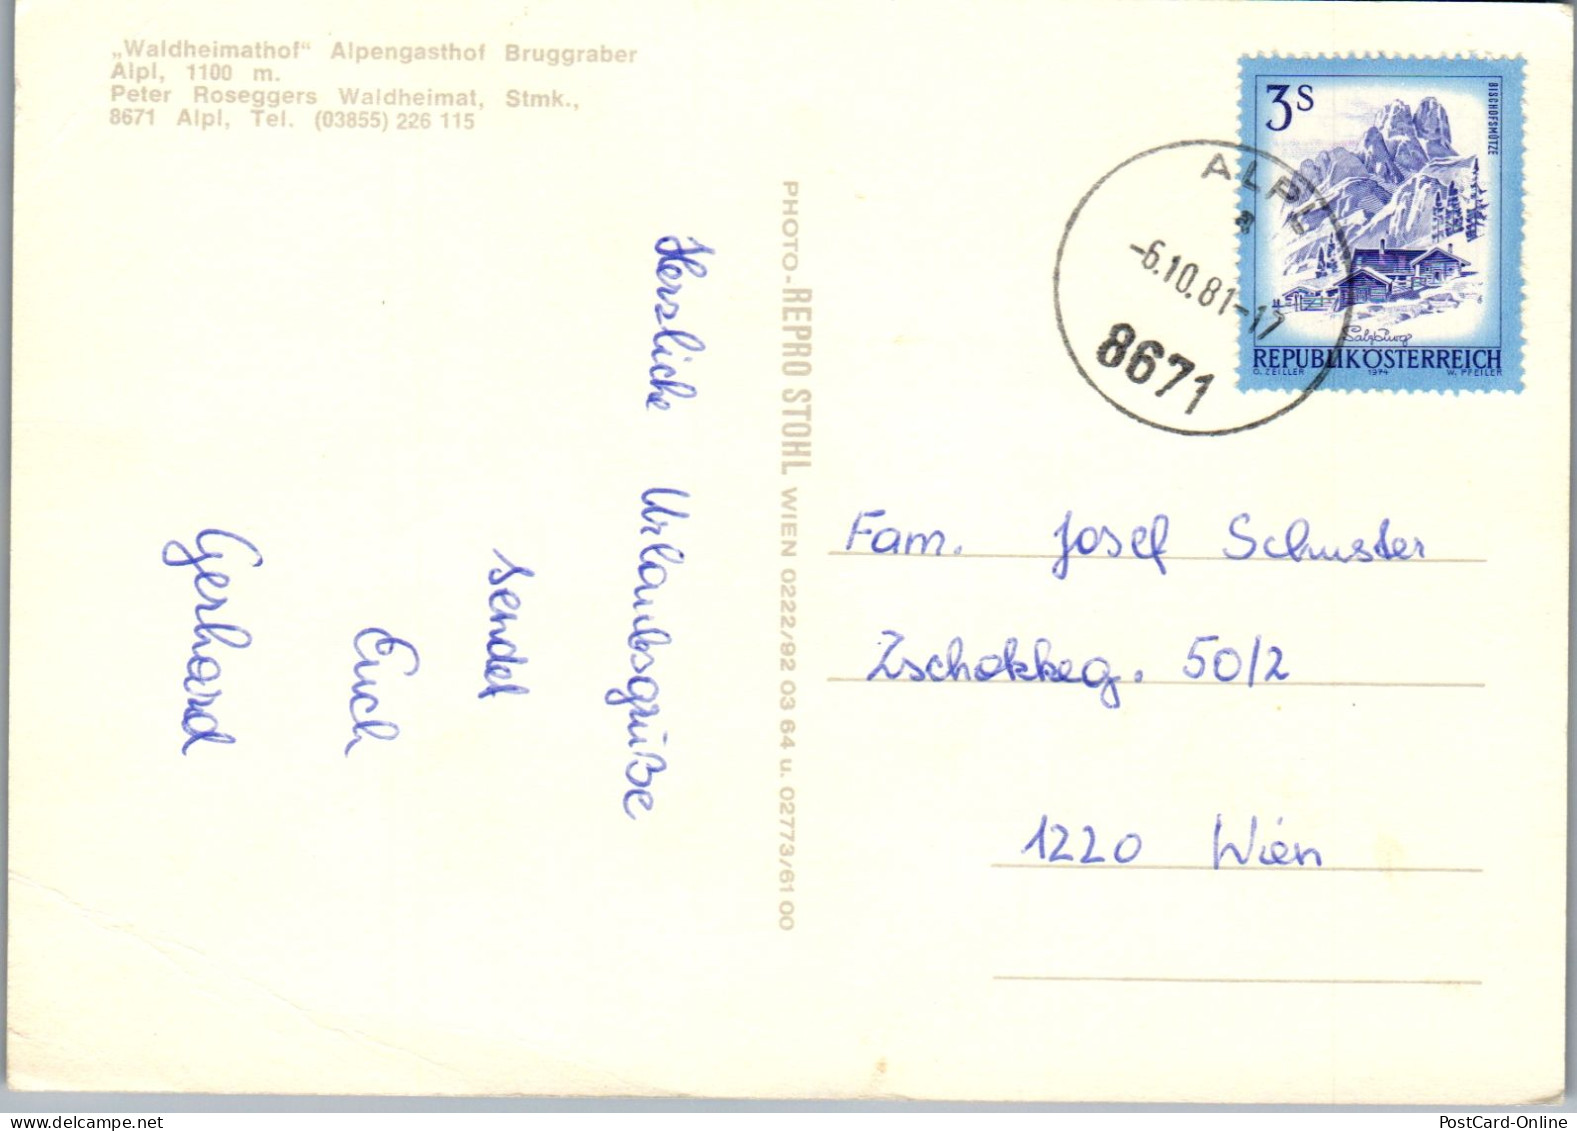 „Waldheimathof“ Alpengasthof Bruggraber
Alpl, 1100 m.
Peter Roseggers Waldheimat, Stmk.,
8671 Alpl, Tel. (03855) 226 115
Herzliche Urlaubsgrüße
sendet
Euch
Gerhard
PHOTO-REPRO STOHL WIEN 0222/92 03 64 u. 02773/61 00
3S
BISCHOFSMÜTZE
Salzburg
REPUBLIK ÖSTERREICH
O. ZEILLER 1974 W. PFEILER
ALPL
a
-6.10.81-17
8671
Fam. Josef Schuster
Zschokkeg. 50/2
1220 Wien
PostCard-Online